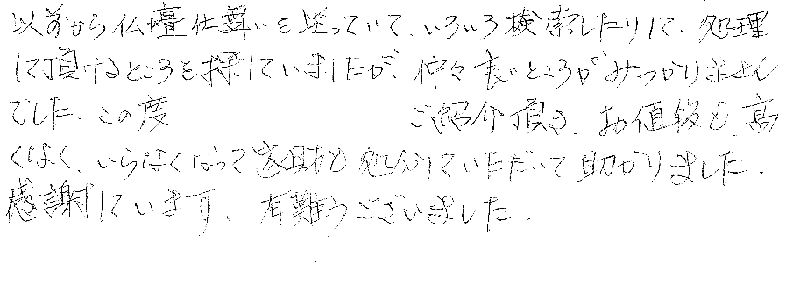 以前から仏壇仕舞いを迷っていて、いろいろ検索したりして、処理
して頂けるところを探していましたが、仲々良いところがみつかりません
でした。この度 ご紹介頂き、お値段も高
くなく、いらなくなって家財も処分していただいて助かりました。
感謝しています。有難うございました。